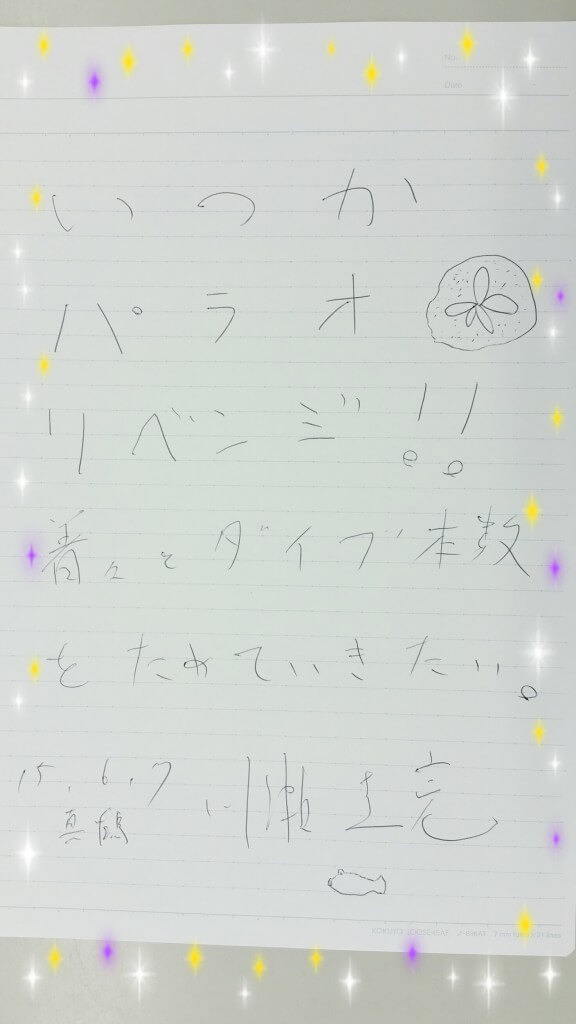 No.
Date
いつか
パラオ
リベンジ!!
着々とダイブ本数
をためていきたい。
15.6.7
真鶴
KOKUYO LOOSE-LEAF ノ-836AT 7 mm ruled×31 lines